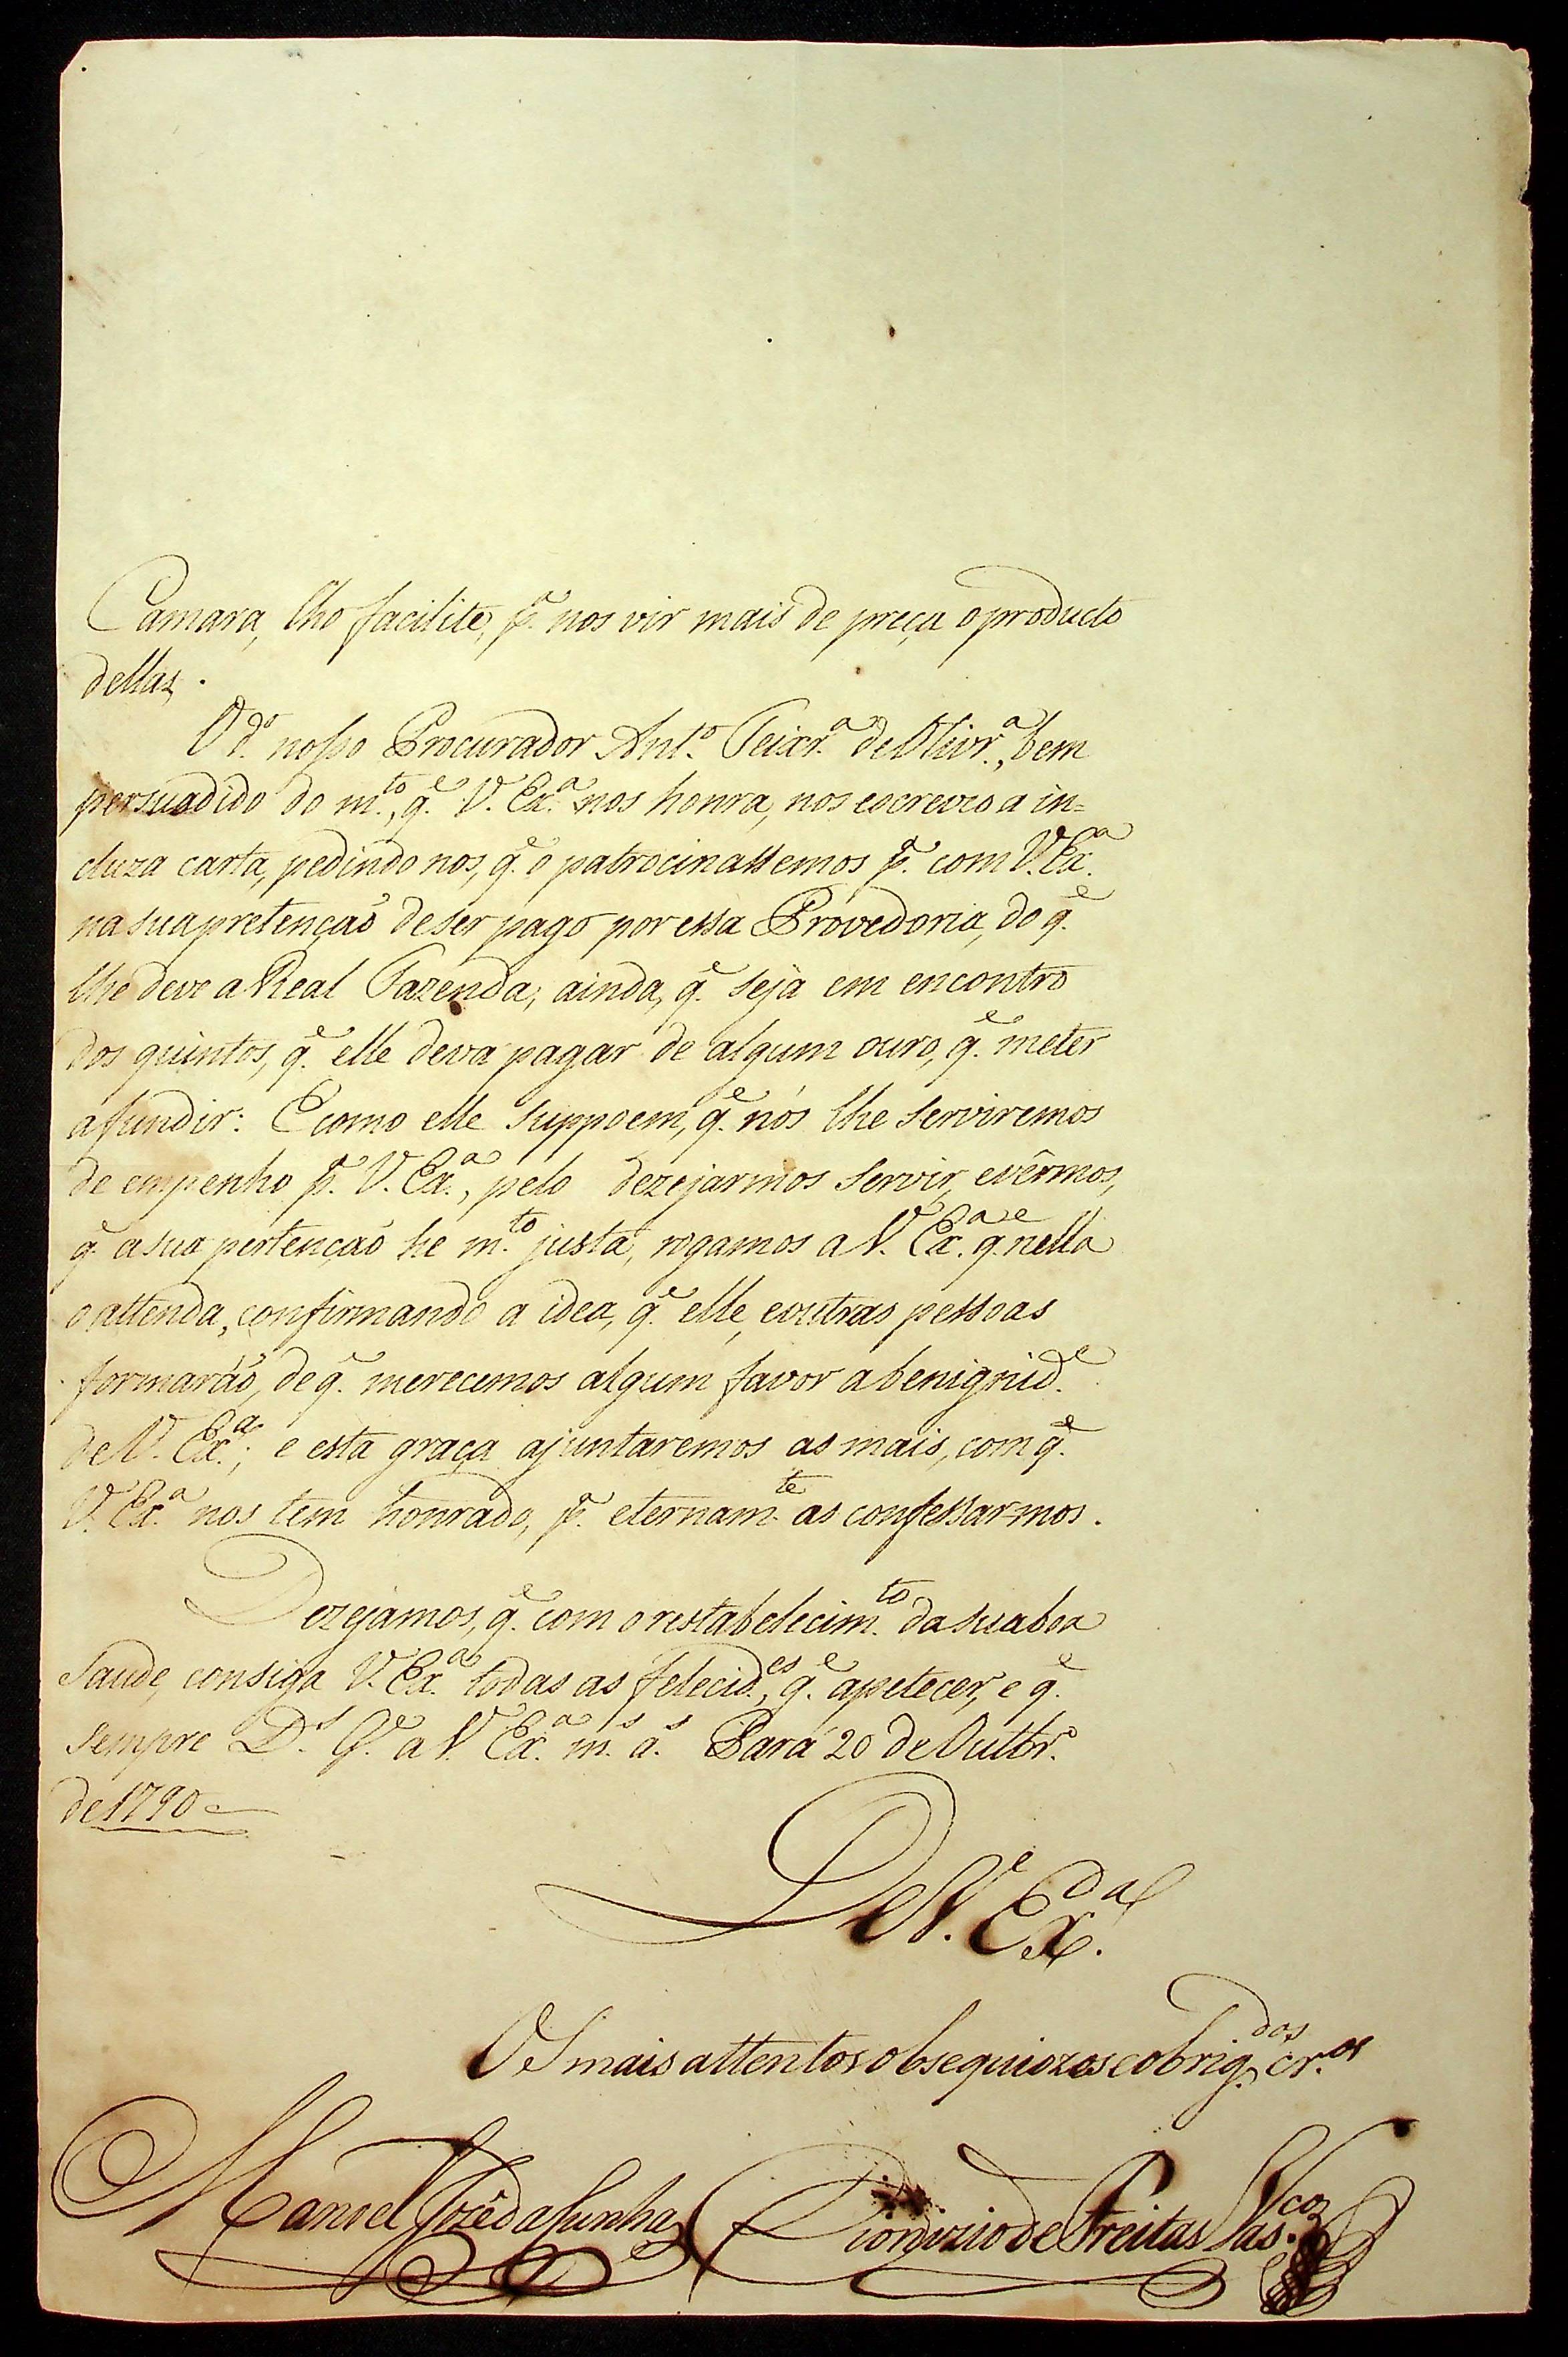 Camara, lho facilite, p.ª nos vir mais de preça o producto
dellas.
O d.º nosso Procurador Ant.º Teixr.ª de Olivr.ª, bem
persuadido do m.to, q.e V. Ex.ª nos honra, nos escreveo a in=
cluza carta, pedindo nos, q.e o patrocinassemos p.ª com V. Ex.ª
na sua pretençaõ de ser pago por essa Provedoria, do q.e
lhe deve a Real Fazenda, ainda, q.e seja em encontro
dos quintos, q.e elle deva pagar de algum ouro, q.e meter
a fundir: E como elle suppoem, q.e nós lhe serviremos
de empenho p.ª V. Ex.ª, pelo dezejarmos servir, e vêrmos,
q.e a sua pertençaõ he m.to justa, rogamos a V. Ex.ª q.e nella
o attenda, confirmando a idea, q.e elle, e outras pessoas
formaráõ, de q.e merecemos algum favor a benignid.e
de V. Ex.ª; e esta graça ajuntaremos as mais, com q.e
V. Ex.ª nos tem honrado, p.ª eternam.te as confessarmos.
Dezejamos, q.e com o restabelecim.to da sua boa
saude, consiga V. Ex.ª todas as felecid.es, q.e apetecer, e q.e
sempre D.s G.e a V. Ex.ª m.s a.s Pará 20 de Outbr.º
de 1790
De V. Ex.ª
Os mais attentos obsequiozos e obrig.dos cr.os
Manoel Jozê da Cunha Dionizio de Freitas Vas.cos